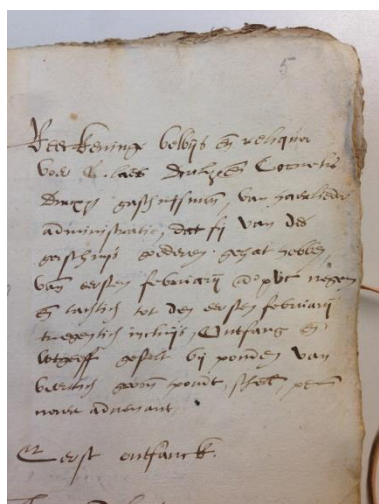 5
Reeckeninge bewijs en reliqua
voer Claes en Cornelis
gasthuijsmrn, van haerlieder
administratie, dat sij van des
gasthuijs goederen gehat hebben,
van eersten februarij a° xvc negen
en tachtich tot den eersten februarij
tnegentich incluijs, Ontfang en
wtgeeff gestelt bij ponden van
veertich groon tpondt, schell, penn
nae advenant.
Eerst ontfanck.